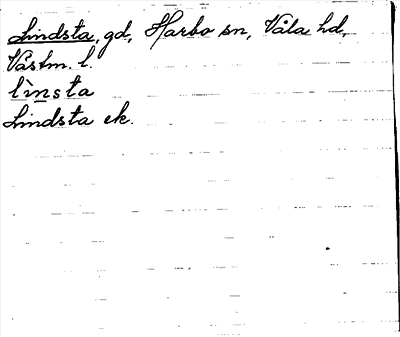 Lindsta, gd, Harbo sn, Våla hd,
Västm. l.
lìnsta
Lindsta ek.